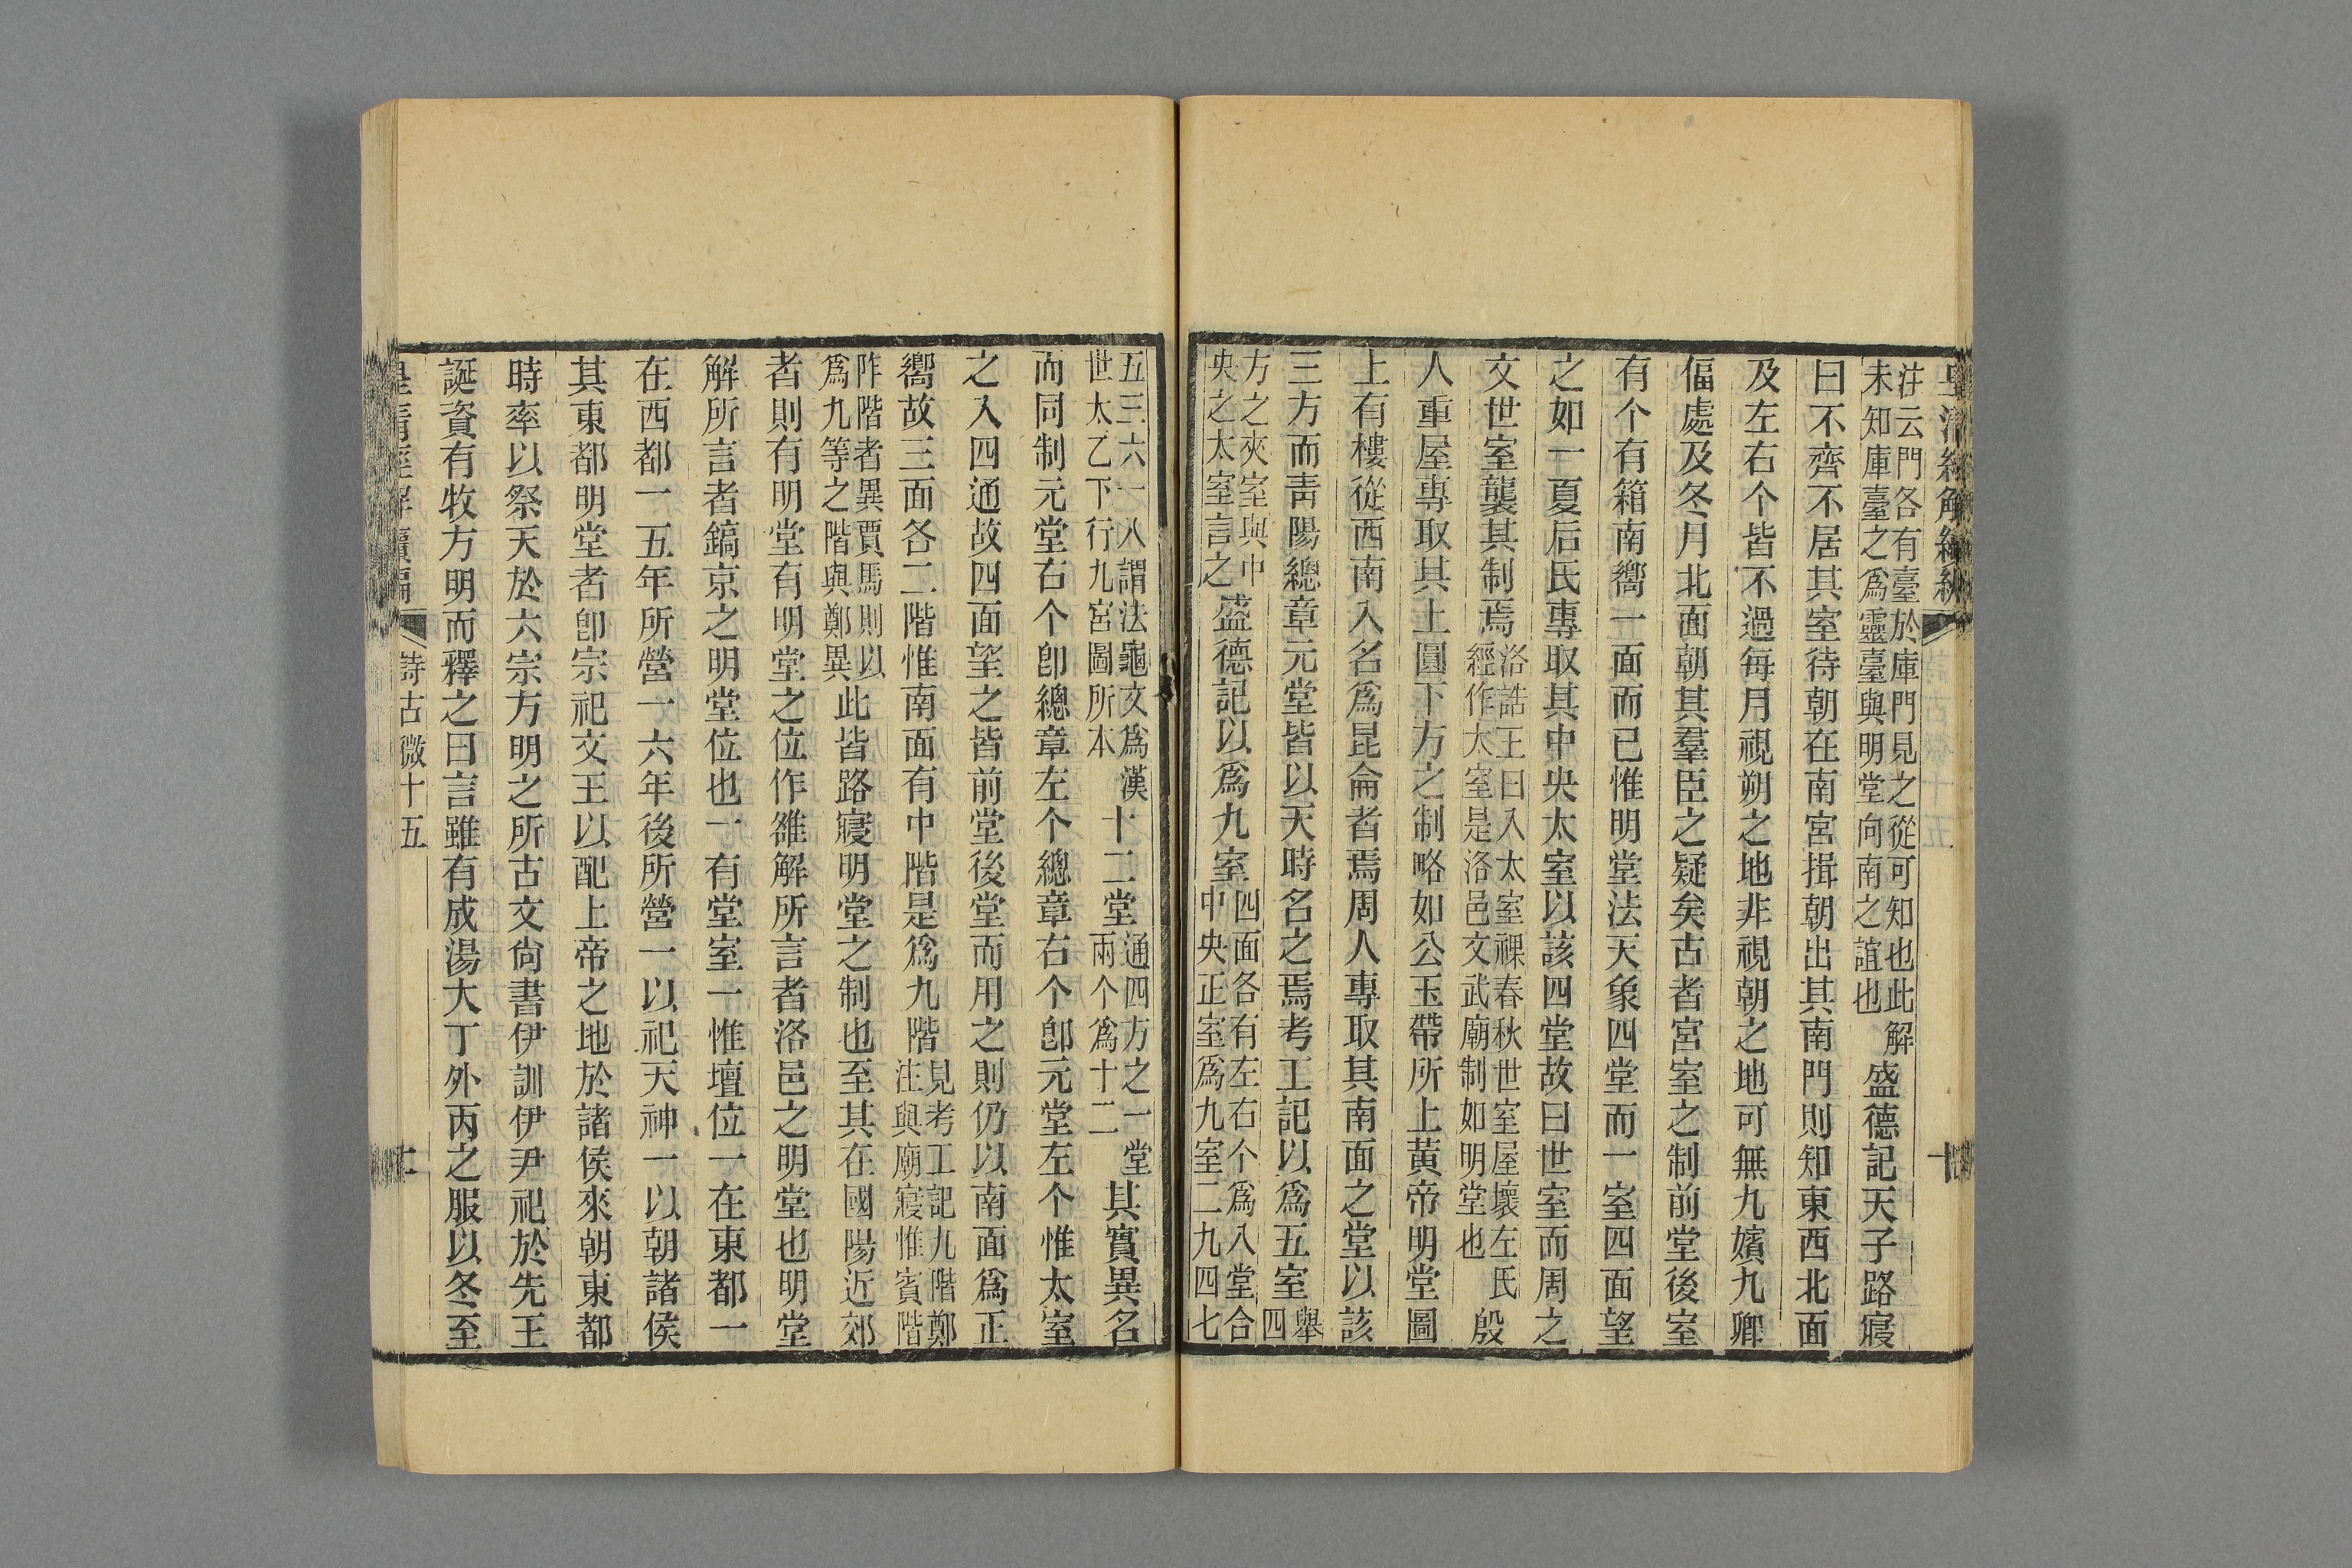 注云門各有臺於庫門見之從可知也此解
未知庫臺之爲靈臺與明堂向南之誼也
盛德記天子路寢
曰不齊不居其室待朝在南宮揖朝出其南門則知東西北面
及左右个皆不過每月視朔之地非視朝之地可無九嬪九卿
偪處及冬月北面朝其羣臣之疑矣古者宮室之制前堂後室
有个有箱南嚮一面而已惟明堂法天象四堂而一室四面望
之如一夏后氏專取其中央太室以該四堂故曰世室而周之
文世室襲其制焉
洛誥王曰入太室祼春秋世室屋壞左氏
經作大室是洛邑文武廟制如明堂也
殷
人重屋專取其上圓下方之制略如公玉帶所上黃帝明堂圖
上有樓從西南入名爲昆侖者焉周人專取其南面之堂以該
三方而靑陽總章元堂皆以天時名之焉考工記以爲五室
舉四
方之夾室與中
央之太室言之
盛德記以爲九室
四面各有左右个爲八堂合
中央正室爲九室二九四七
五三六一八謂法龜文爲漢
世太乙下行九宮圖所本
十二堂
通四方之一堂
兩个爲十二
其實異名
而同制元堂右个卽總章左个總章右个卽元堂左个惟太室
之入四通故四面望之皆前堂後堂而用之則仍以南面爲正
嚮故三面各二階惟南面有中階是爲九階
見考工記九階鄭
注與廟寢惟賓階
阼階者異賈馬則以
爲九等之階與鄭異
此皆路寢明堂之制也至其在國陽近郊
者則有明堂有明堂之位作雒解所言者洛邑之明堂也明堂
解所言者鎬京之明堂位也一有堂室一惟壇位一在東都一
在西都一五年所營一六年後所營一以祀天神一以朝諸侯
其東都明堂者卽宗祀文王以配上帝之地於諸侯來朝東都
時率以祭天於六宗方明之所古文尙書伊訓伊尹祀於先王
誕資有牧方明而釋之曰言雖有成湯大丁外丙之服以冬至
詩古微十五